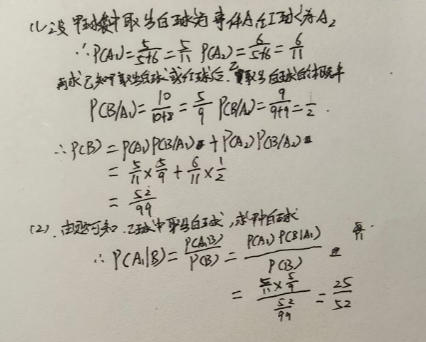 (1)设甲球袋中取出白球为事件A₁红球为A₂
∴P(A₁)=5/(5+6)=5/11 P(A₂)=6/(5+6)=6/11
再求乙中取出白球或红球后,乙取出白球的概率
P(B/A₁)=10/(10+8)=5/9 P(B/A₂)=9/(9+9)=1/2.
∴P(B)=P(A₁)P(B/A₁)+P(A₂)P(B/A₂)
=5/11×5/9+6/11×1/2
=52/99
(2).由题可知.乙球中取出白球,求甲白球
∴P(A₁|B)=P(A₁B)/P(B)=P(A₁)P(B|A₁)/P(B)
=(5/11×5/9)/(52/99)=25/52